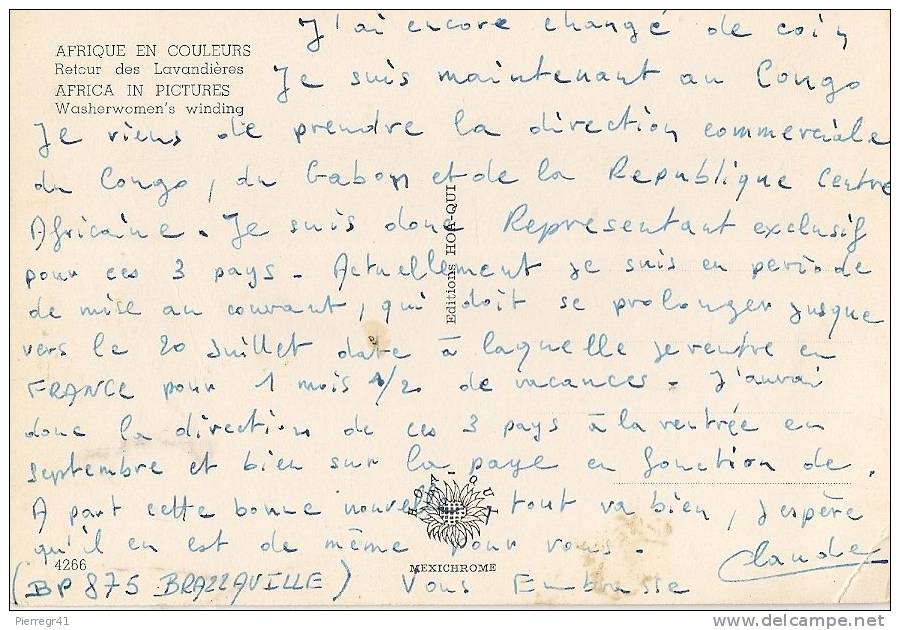 AFRIQUE EN COULEURS
Retour des Lavandières
AFRICA IN PICTURES
Washerwomen's winding
J'ai encore changé de coin
Je suis maintenant au Congo
Je viens de prendre la direction commerciale
du Congo, du Gabon et de la Republique Centre
Africaine. Je suis donc Representant exclusif
pour ces 3 pays. Actuellement je suis en période
de mise au courant, qui doit se prolonger jusque
vers le 20 Juillet date à laquelle je rentre en
FRANCE pour 1 mois 1/2 de vacances. J'aurai
donc la direction de ces 3 pays à la rentrée en
septembre et bien sur la paye en fonction de.
A part cette bonne nouvelle, tout va bien, j'espère
qu'il en est de même pour vous.
Claude
(BP 875 BRAZZAVILLE) Vous Embrasse
Editions HOA-QUI
HOA-QUI
4266
MEXICHROME
Pierregr41
delcampe.net